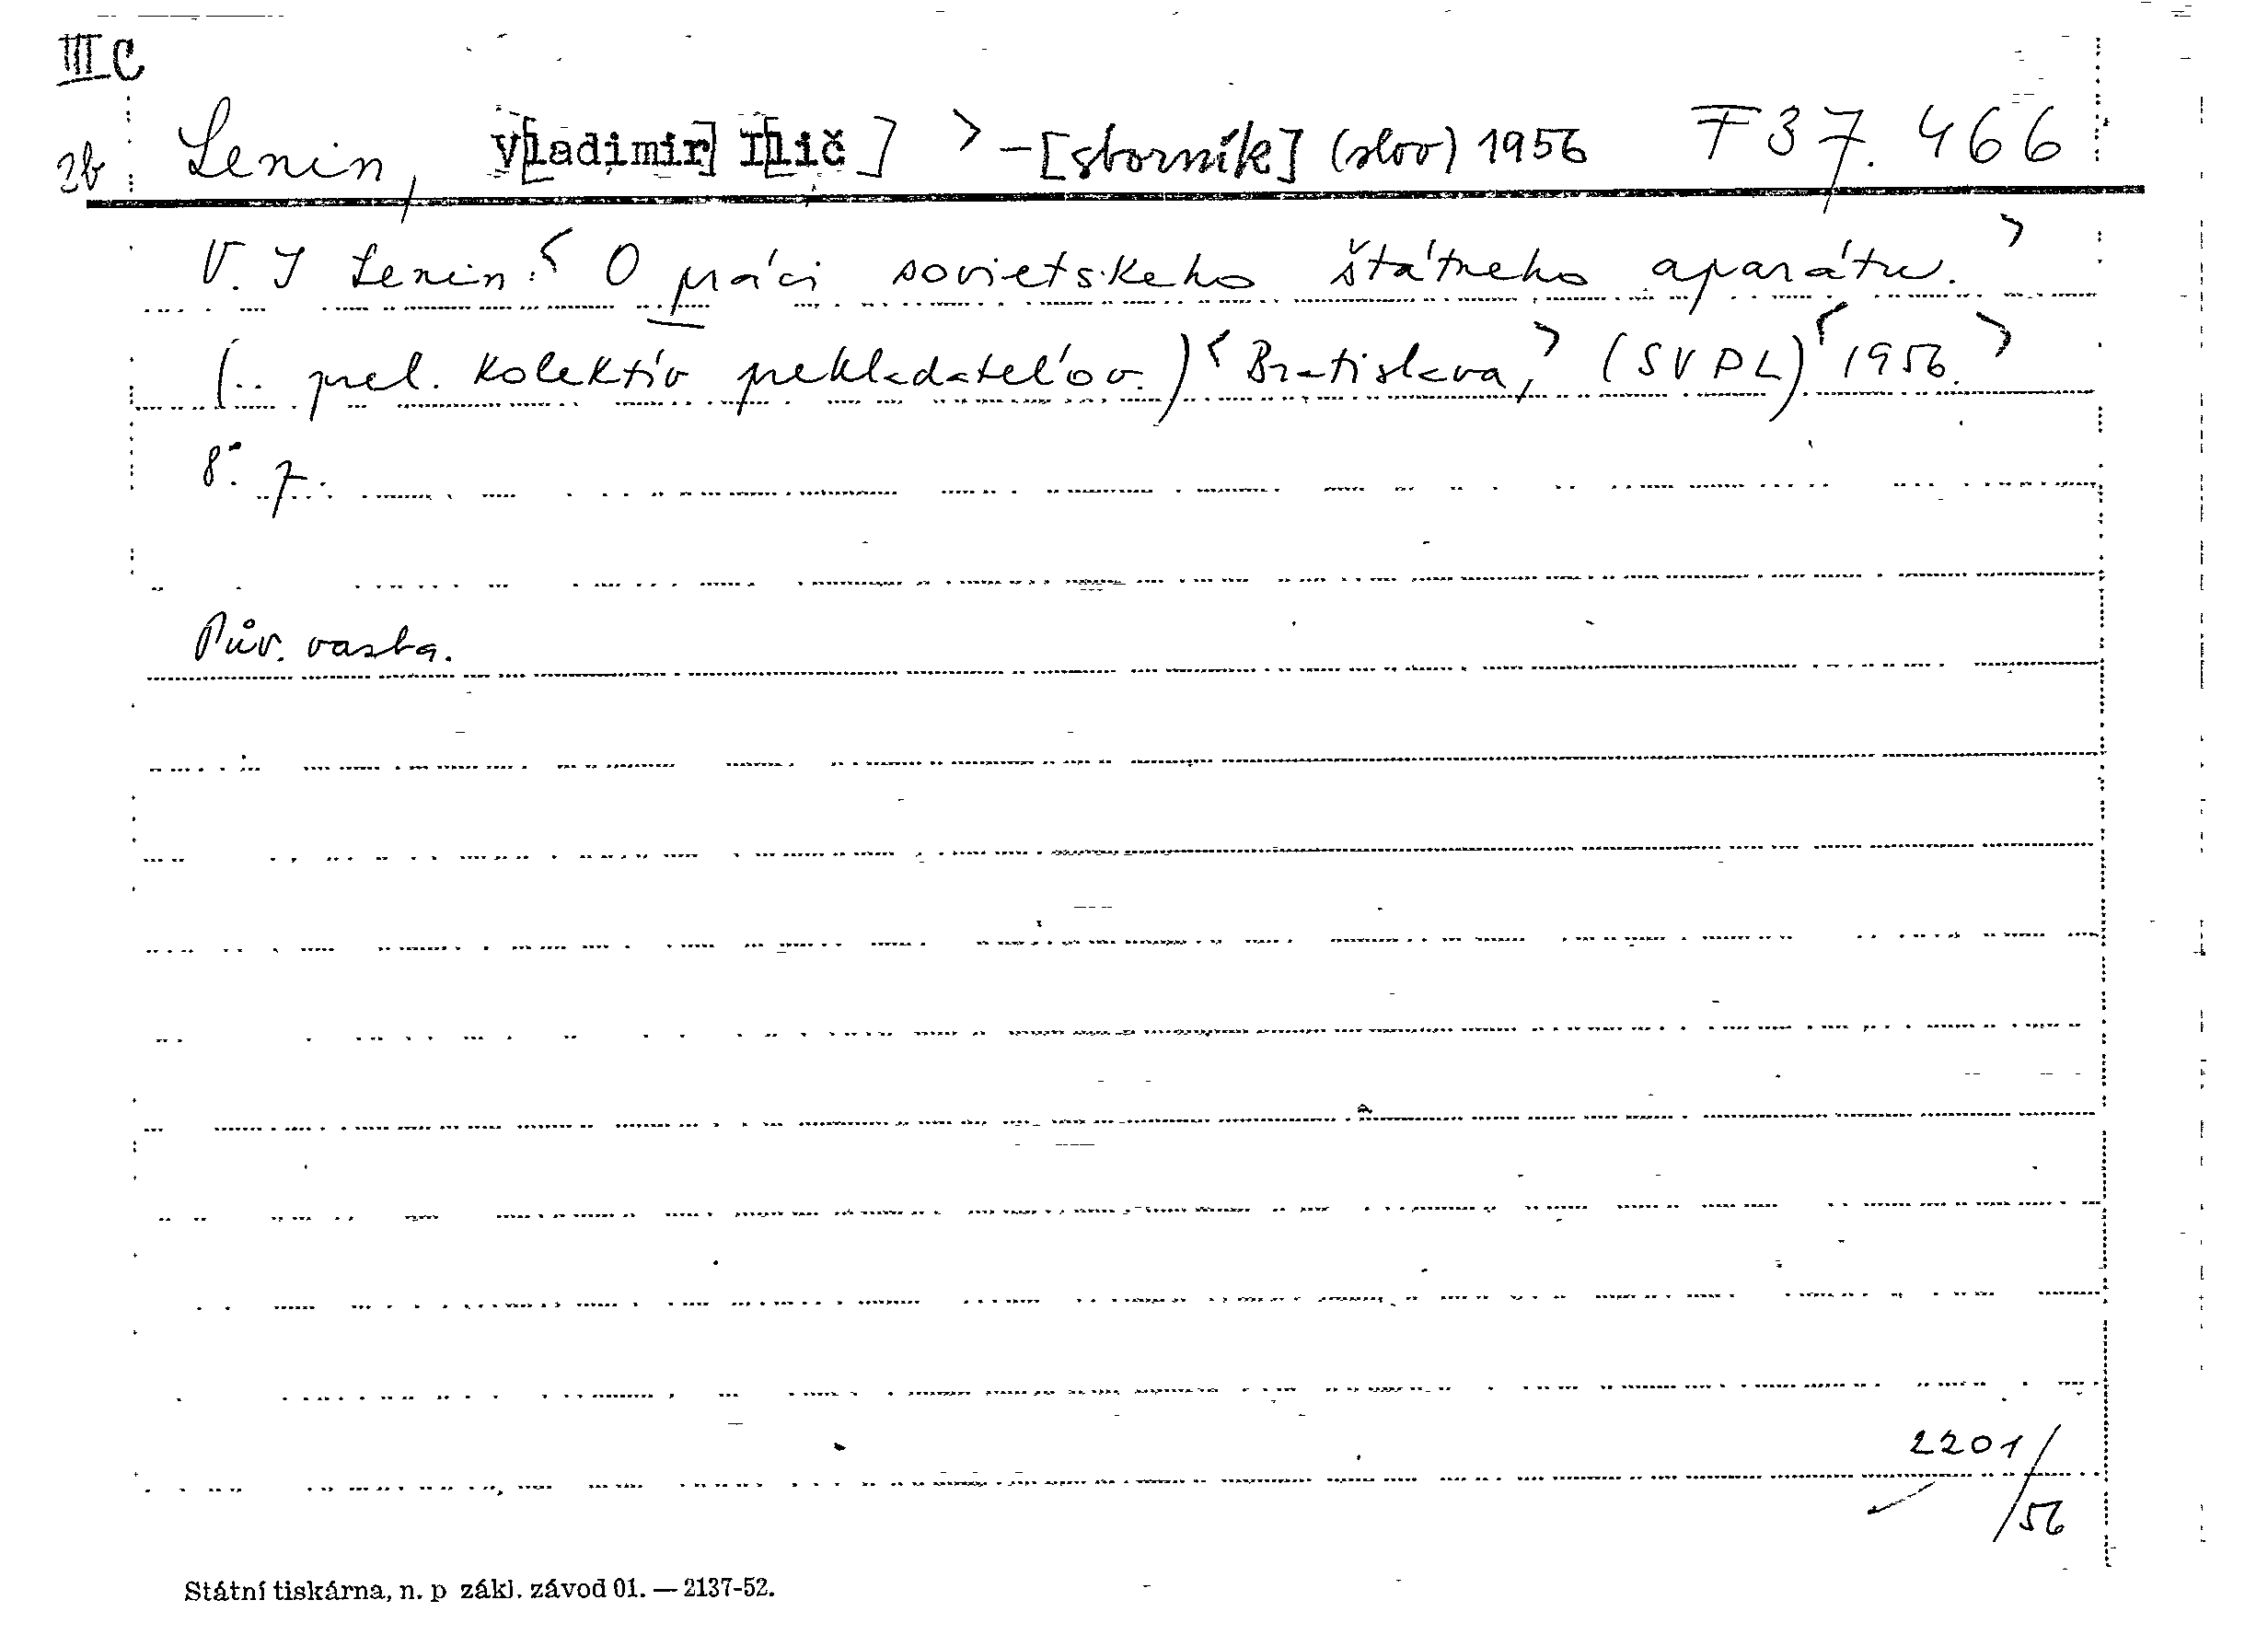 III C
2b Lenin, V[ladimir] I[lič] > - [sborník] (slov) 1956 F 37.466
V. I Lenin: < O práci sovietskeho štátneho aparátu. >
(.. prel. Kolektív prekladateľov.) < Bratislava, > (SVPL) < 1956. >
8°. 7.
Pův. vazba.
2201/
/56
Státní tiskárna, n. p zákl. závod 01. — 2137-52.